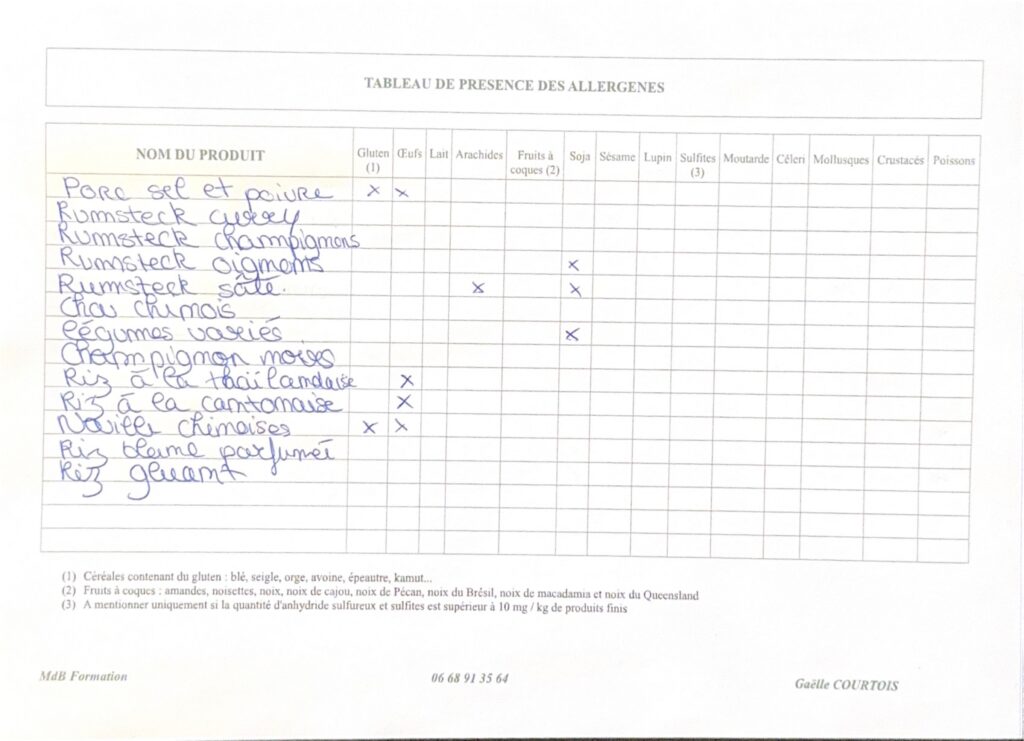 TABLEAU DE PRESENCE DES ALLERGENES
NOM DU PRODUIT Gluten (1) Œufs Lait Arachides Fruits à coques (2) Soja Sésame Lupin Sulfites (3) Moutarde Céleri Mollusques Crustacés Poissons
Porc sel et poivre x x
Rumsteck curry
Rumsteck champignons
Rumsteck oignons x
Rumsteck sâté. x x
Chou chinois
Légumes variés x
Champignon noires
Riz à la thaïlandaise x
Riz à la cantonaise x
Nouilles chinoises x x
Riz blanc parfumé
Riz gluant
(1) Céréales contenant du gluten : blé, seigle, orge, avoine, épeautre, kamut...
(2) Fruits à coques : amandes, noisettes, noix, noix de cajou, noix de Pécan, noix du Brésil, noix de macadamia et noix du Queensland
(3) A mentionner uniquement si la quantité d'anhydride sulfureux et sulfites est supérieur à 10 mg / kg de produits finis
MdB Formation 06 68 91 35 64 Gaëlle COURTOIS